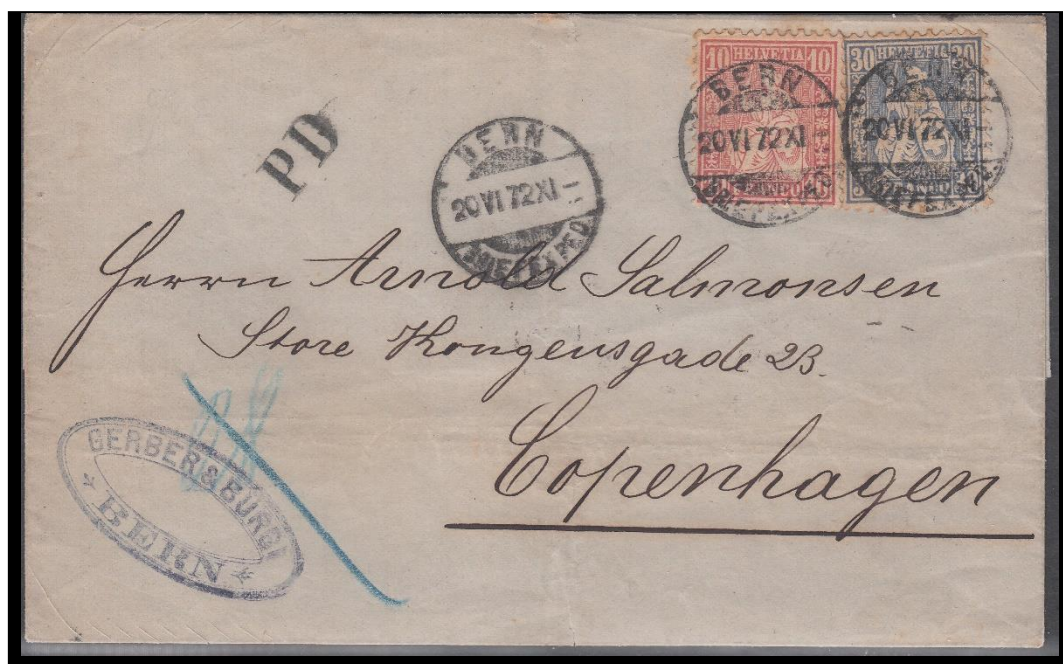 10 HELVETIA 10
FRANCO
30 HELVETIA 30
FRANCO
BERN
20 VI 72 XI
BRIEFEXPED.
BERN
20 VI 72 XI
BRIEFEXPED.
PD
BERN
20 VI 72 XI
BRIEFEXPED.
Herrn Arnold Salmonsen
Store Kongensgade 23.
Copenhagen
GERBER & BÜRGI
BERN